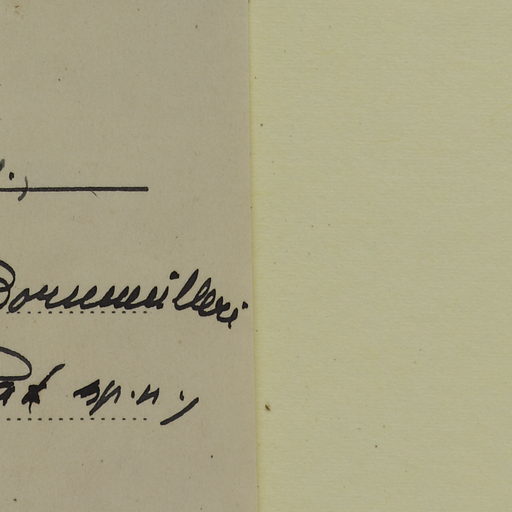 Bornmülleri
Pax sp.n.;